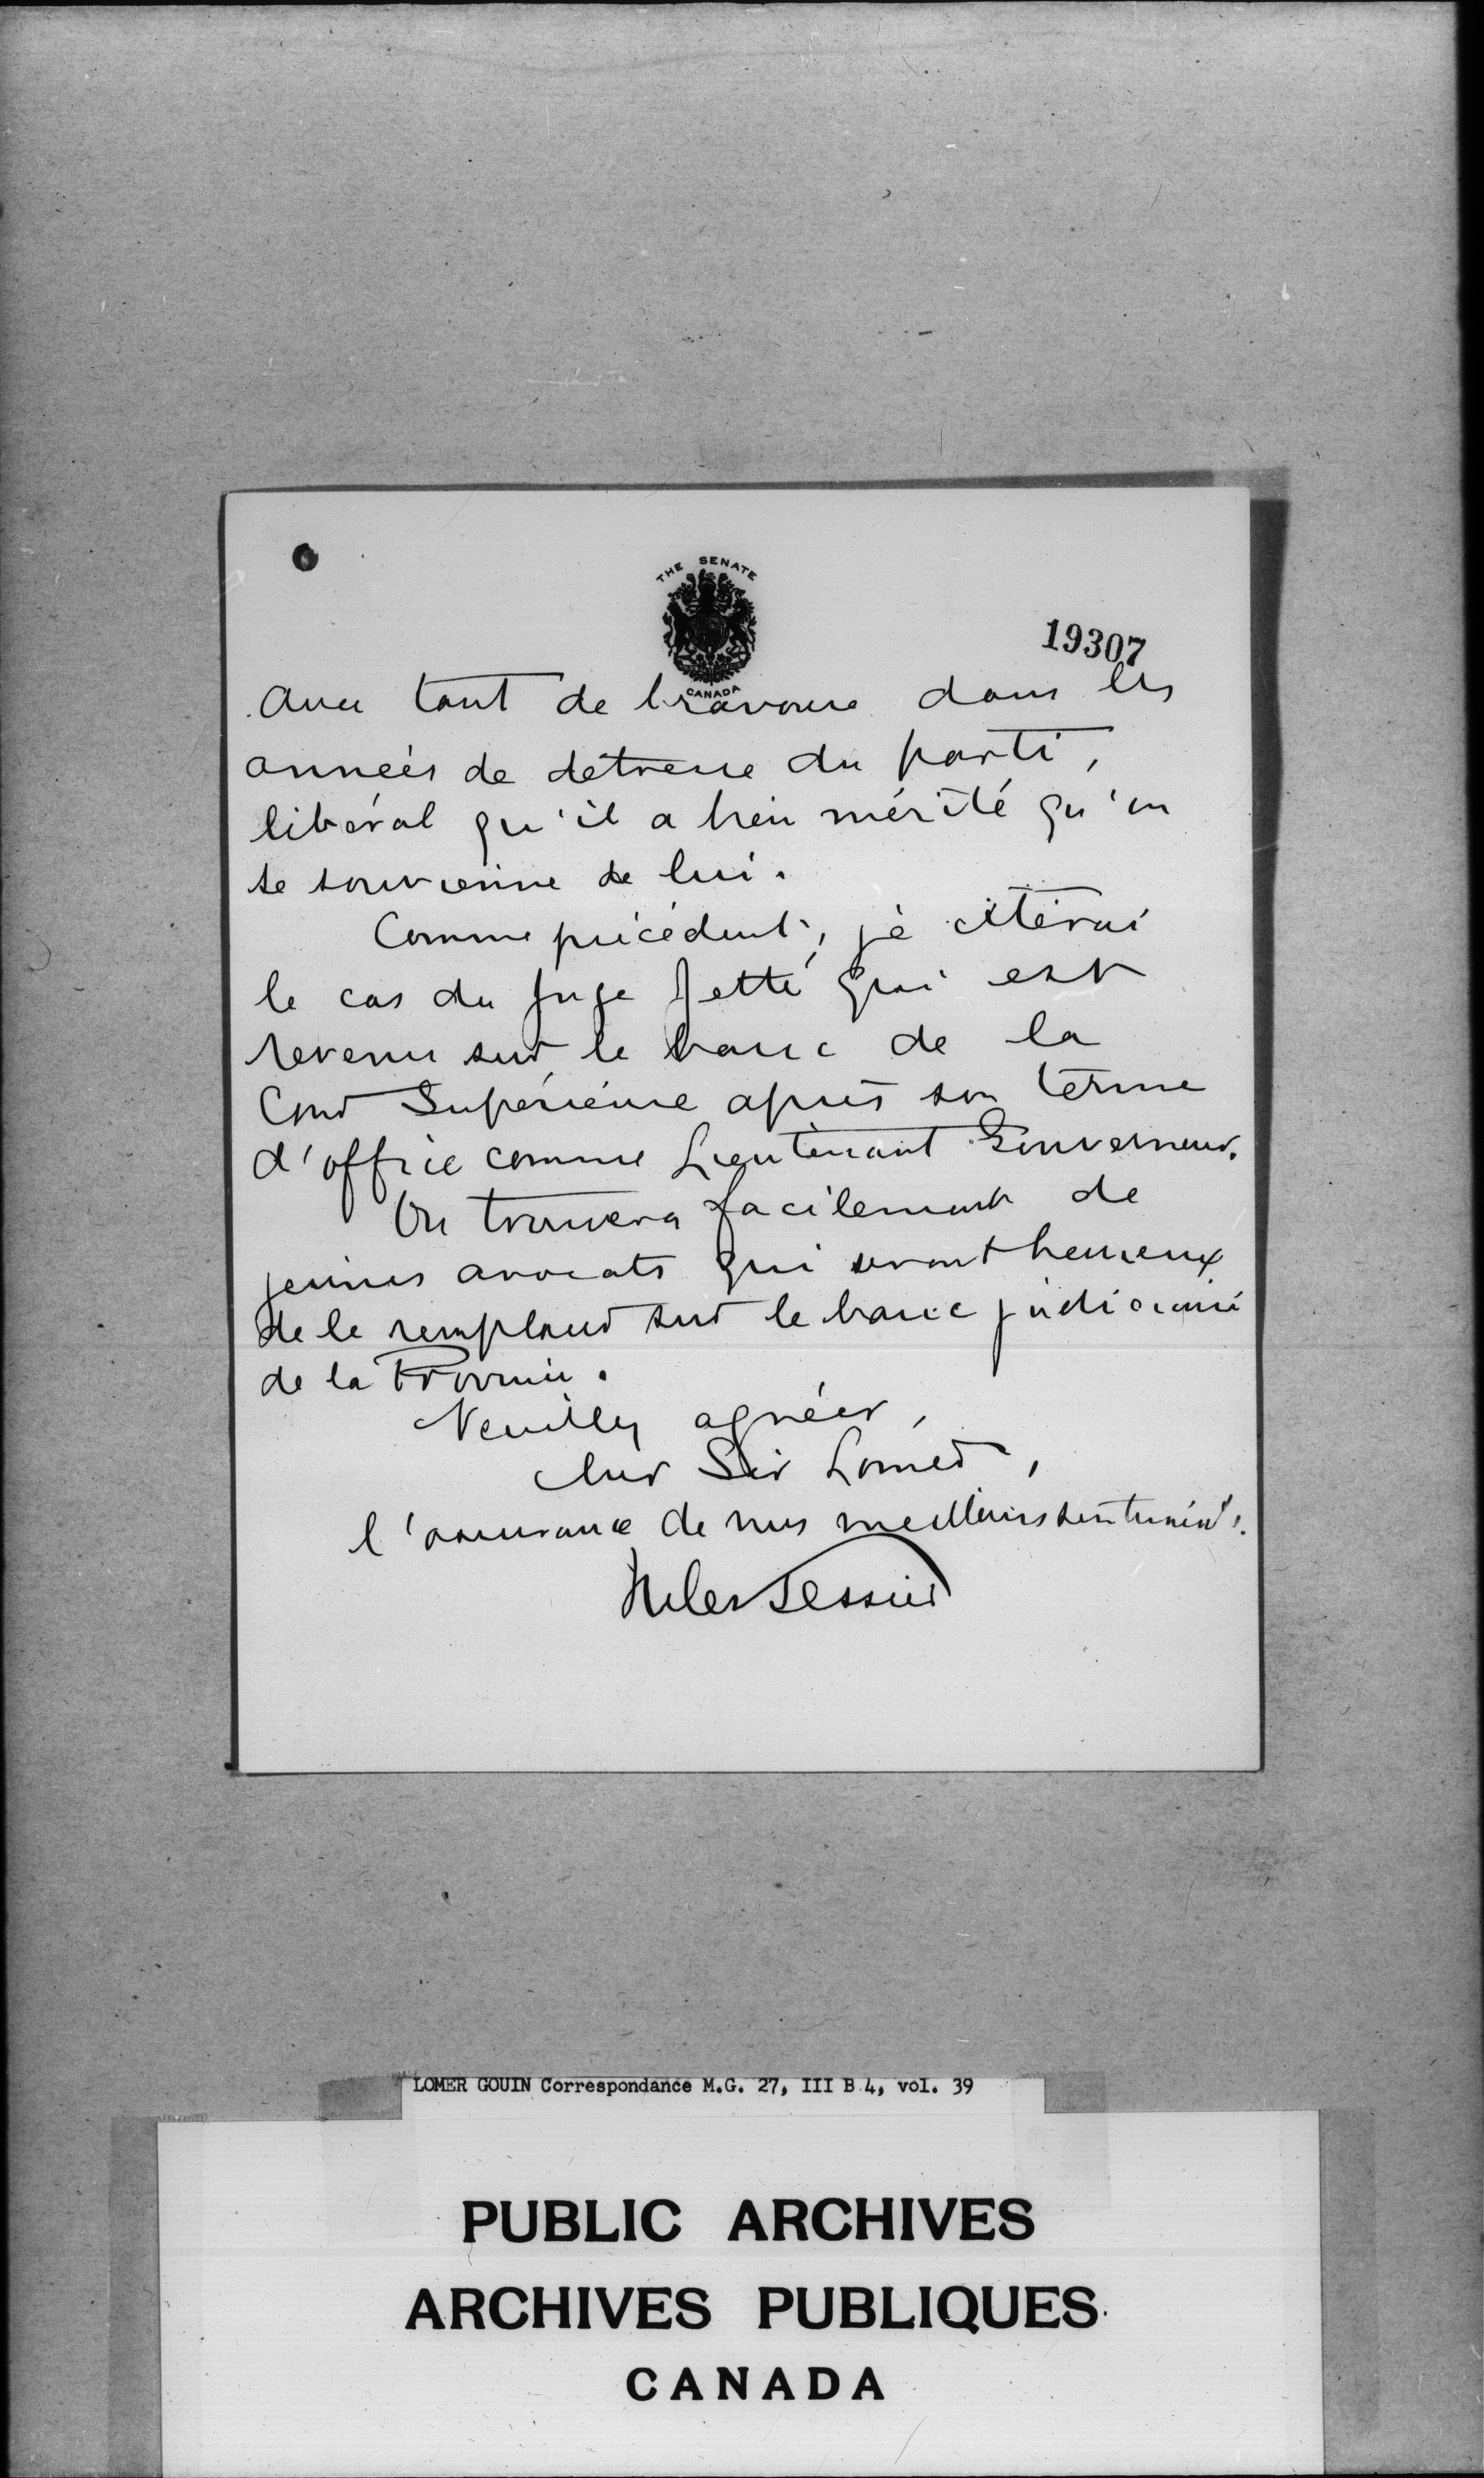 THE SENATE
CANADA
19307
avec tant de bravoure dans les
années de détresse du parti,
libéral qu'il a bien mérité qu'on
se souvienne de lui.
Comme précédent, je citerai
le cas du Juge Jetté qui est
revenu sur le banc de la
Cour Supérieure après son terme
d'office comme Lieutenant Gouverneur.
On trouvera facilement de
jeunes avocats qui seront heureux
de le remplacer sur le banc judiciaire
de la Province.
Veuillez agréer,
cher Sir Lomer,
l'assurance de mes meilleurs sentiments.
Jules Tessier
LOMER GOUIN Correspondance M.G. 27, III B 4, vol. 39
PUBLIC ARCHIVES
ARCHIVES PUBLIQUES
CANADA